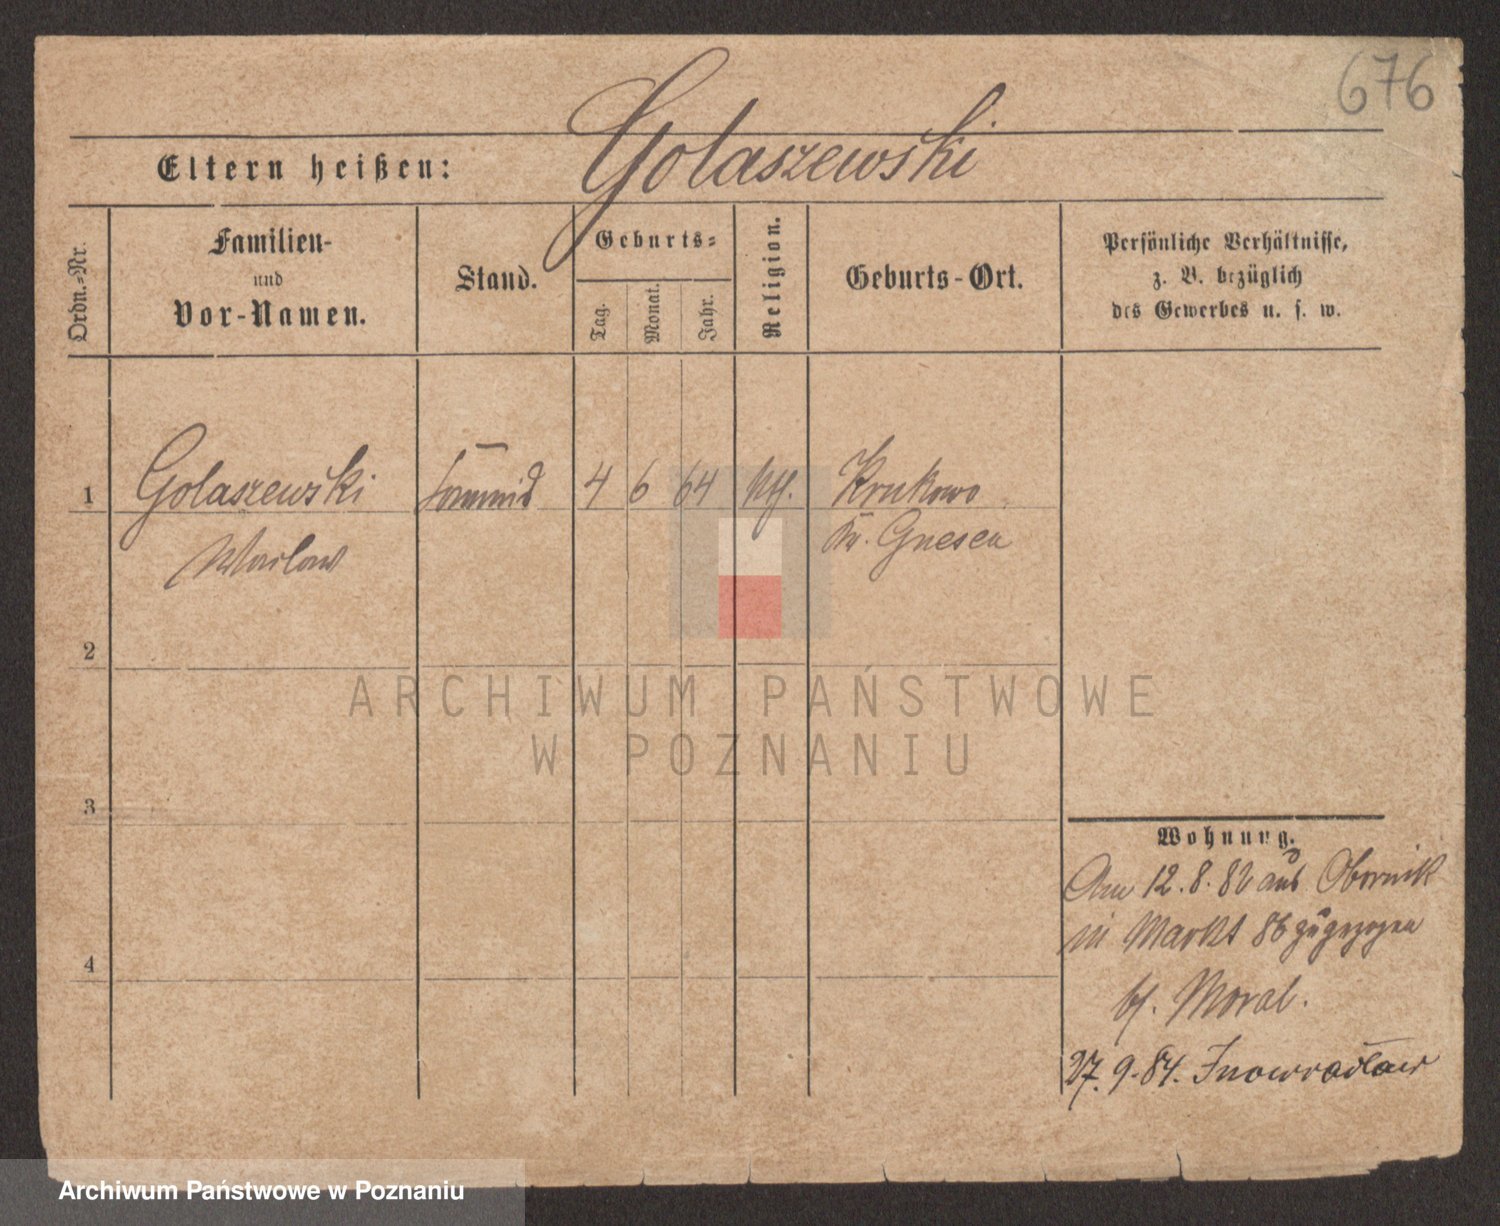 676
Golaszewski
Eltern heißen:
Ordn.-Nr.
Familien-
und
Vor-Namen.
Stand.
Geburts-
Tag.
Monat.
Jahr.
Religion.
Geburts-Ort.
Persönliche Verhältnisse,
z. B. bezüglich
des Gewerbes u. s. w.
1 Golaszewski 4 6 64 kth. Krukowo
Waclaw Kr. Gnesen
2
3
4
Wohnung.
Am 12.8.82 aus Obornik
in Markt 86 zugezogen
bf. Moral.
27.9.84. Inowraclaw
ARCHIWUM PAŃSTWOWE
W POZNANIU
Archiwum Państwowe w Poznaniu